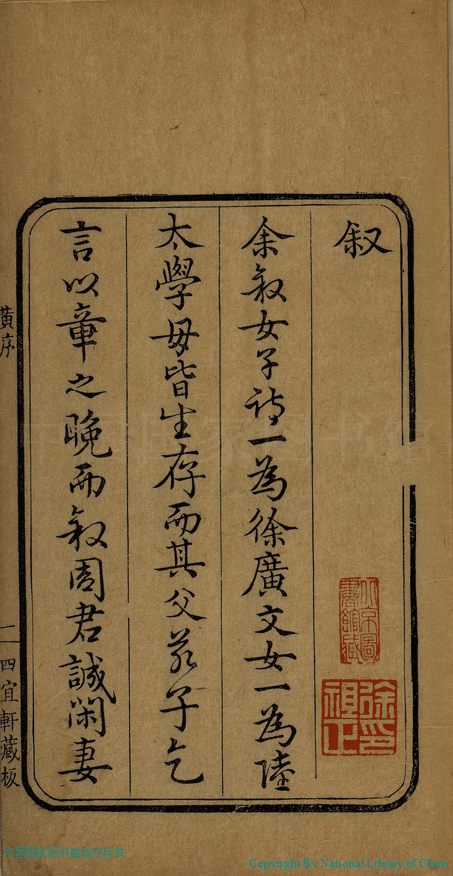 叙
余叙女子詩一為徐廣文女一為陸
太學母皆生存而其父若子乞
言以章之晚而叙周君誠閑妻
黄序
一
四宜軒藏板
北京圖書館藏
徐祖正印
Copyright By National Library of China